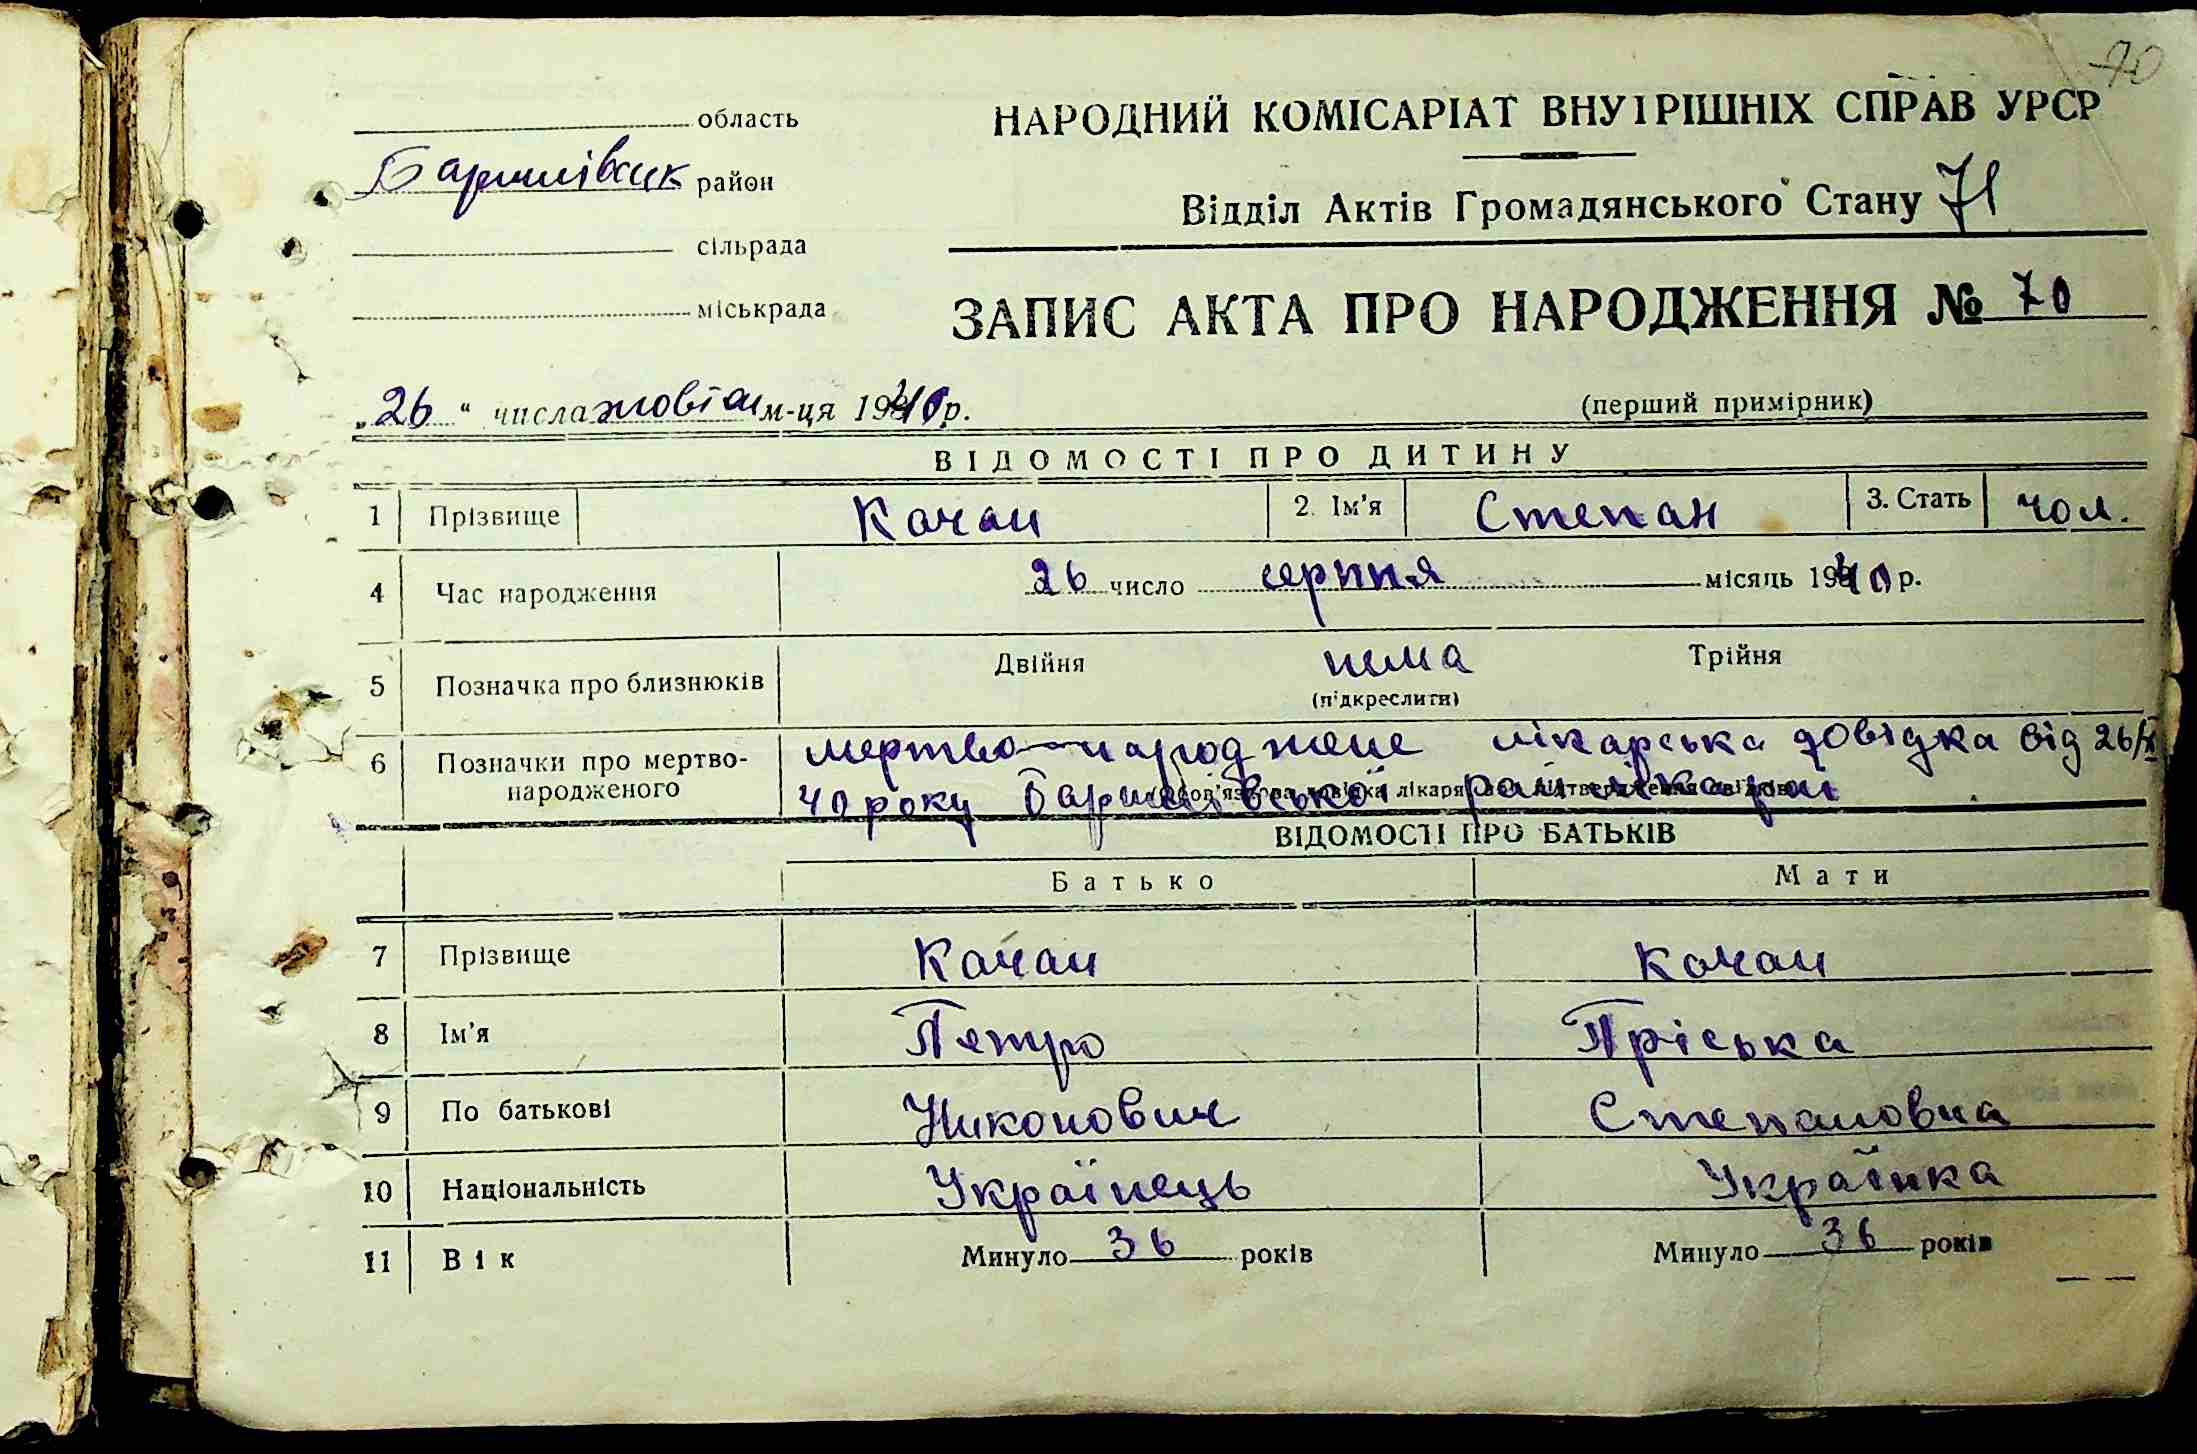 70
область
Баришівськ район
сільрада
міськрада
НАРОДНИЙ КОМІСАРІАТ ВНУТРІШНІХ СПРАВ УРСР
Відділ Актів Громадянського Стану 71
ЗАПИС АКТА ПРО НАРОДЖЕННЯ № 70
„26“ числа жовтн м-ця 1940 р.
(перший примірник)
ВІДОМОСТІ ПРО ДИТИНУ
1 Прізвище Качан 2. Ім'я Степан 3. Стать чол.
4 Час народження 26 число серпня місяць 1940 р.
5 Позначка про близнюків Двійня нема Трійня
(підкреслити)
6 Позначки про мертво-народженого мертво-народжене лікарська довідка від 26/
40 року Баришівської рай лікарні
ВІДОМОСТІ ПРО БАТЬКІВ
Батько Мати
7 Прізвище Качан Качан
8 Ім'я Петро Пріська
9 По батькові Никонович Степановна
10 Національність Українець Українка
11 Вік Минуло 36 років Минуло 36 років